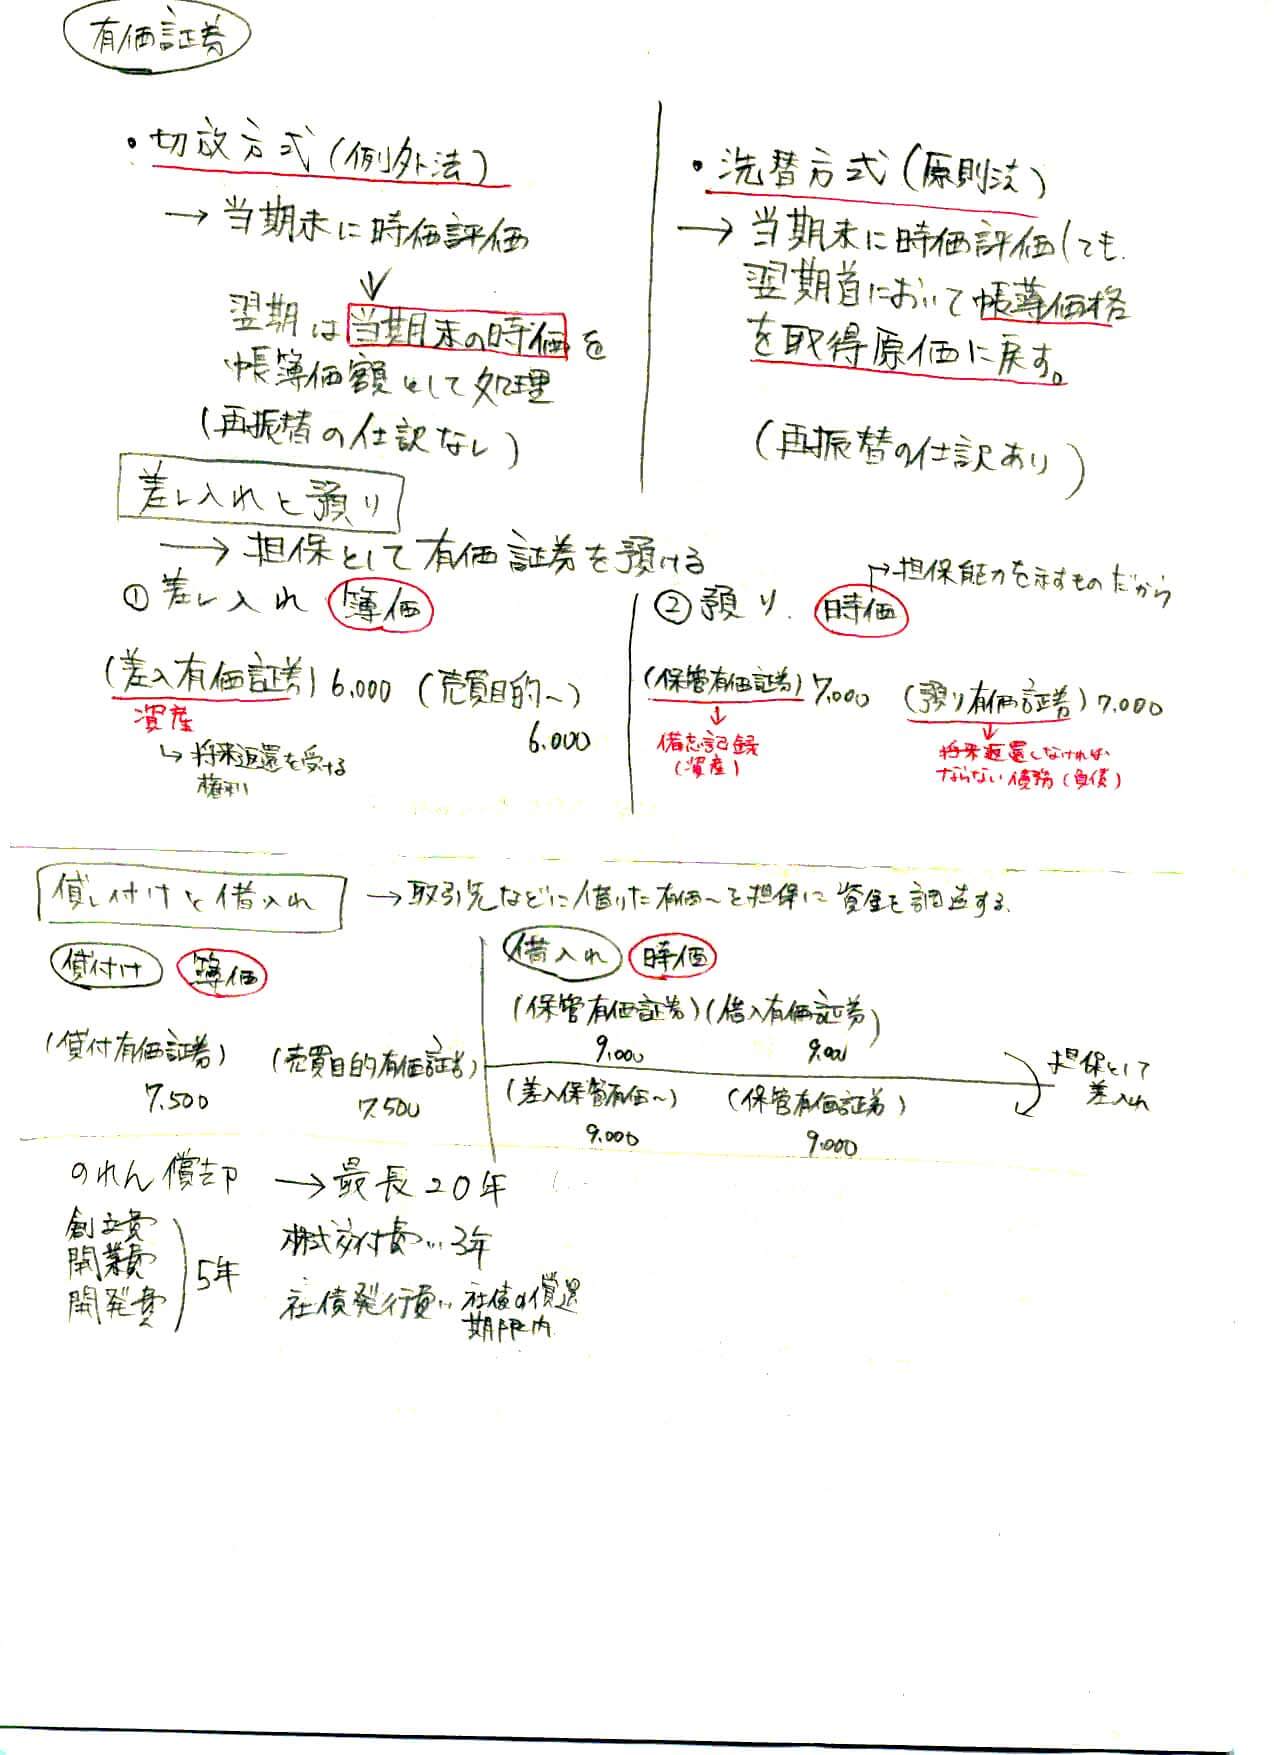 有価証券
・切放方式(例外法)
→当期末に時価評価
翌期は当期末の時価を
帳簿価額として処理
(再振替の仕訳なし)
・洗替方式(原則法)
→当期末に時価評価しても、
翌期首において帳簿価格
を取得原価に戻す。
(再振替の仕訳あり)
差し入れと預り
→担保として有価証券を預ける
①差し入れ 簿価
(差入有価証券)6,000 (売買目的~)
6,000
資産
↳将来返還を受ける
権利
②預り 時価
→担保能力を示すものだから
(保管有価証券)7,000 (預り有価証券)7,000
↓
備忘記録
(資産)
↓
将来返還しなければ
ならない債務(負債)
貸し付けと借入れ →取引先などに借りた有価~を担保に資金を調達する。
貸付け 簿価
(貸付有価証券) (売買目的有価証券)
7,500 7,500
借入れ 時価
(保管有価証券)(借入有価証券)
9,000 9,000
(差入保管有価~) (保管有価証券)
9,000 9,000
担保として
差入れ
のれん償却 →最長20年
創立費
開業費
開発費
5年
株式交付費…3年
社債発行費…社債の償還
期限内